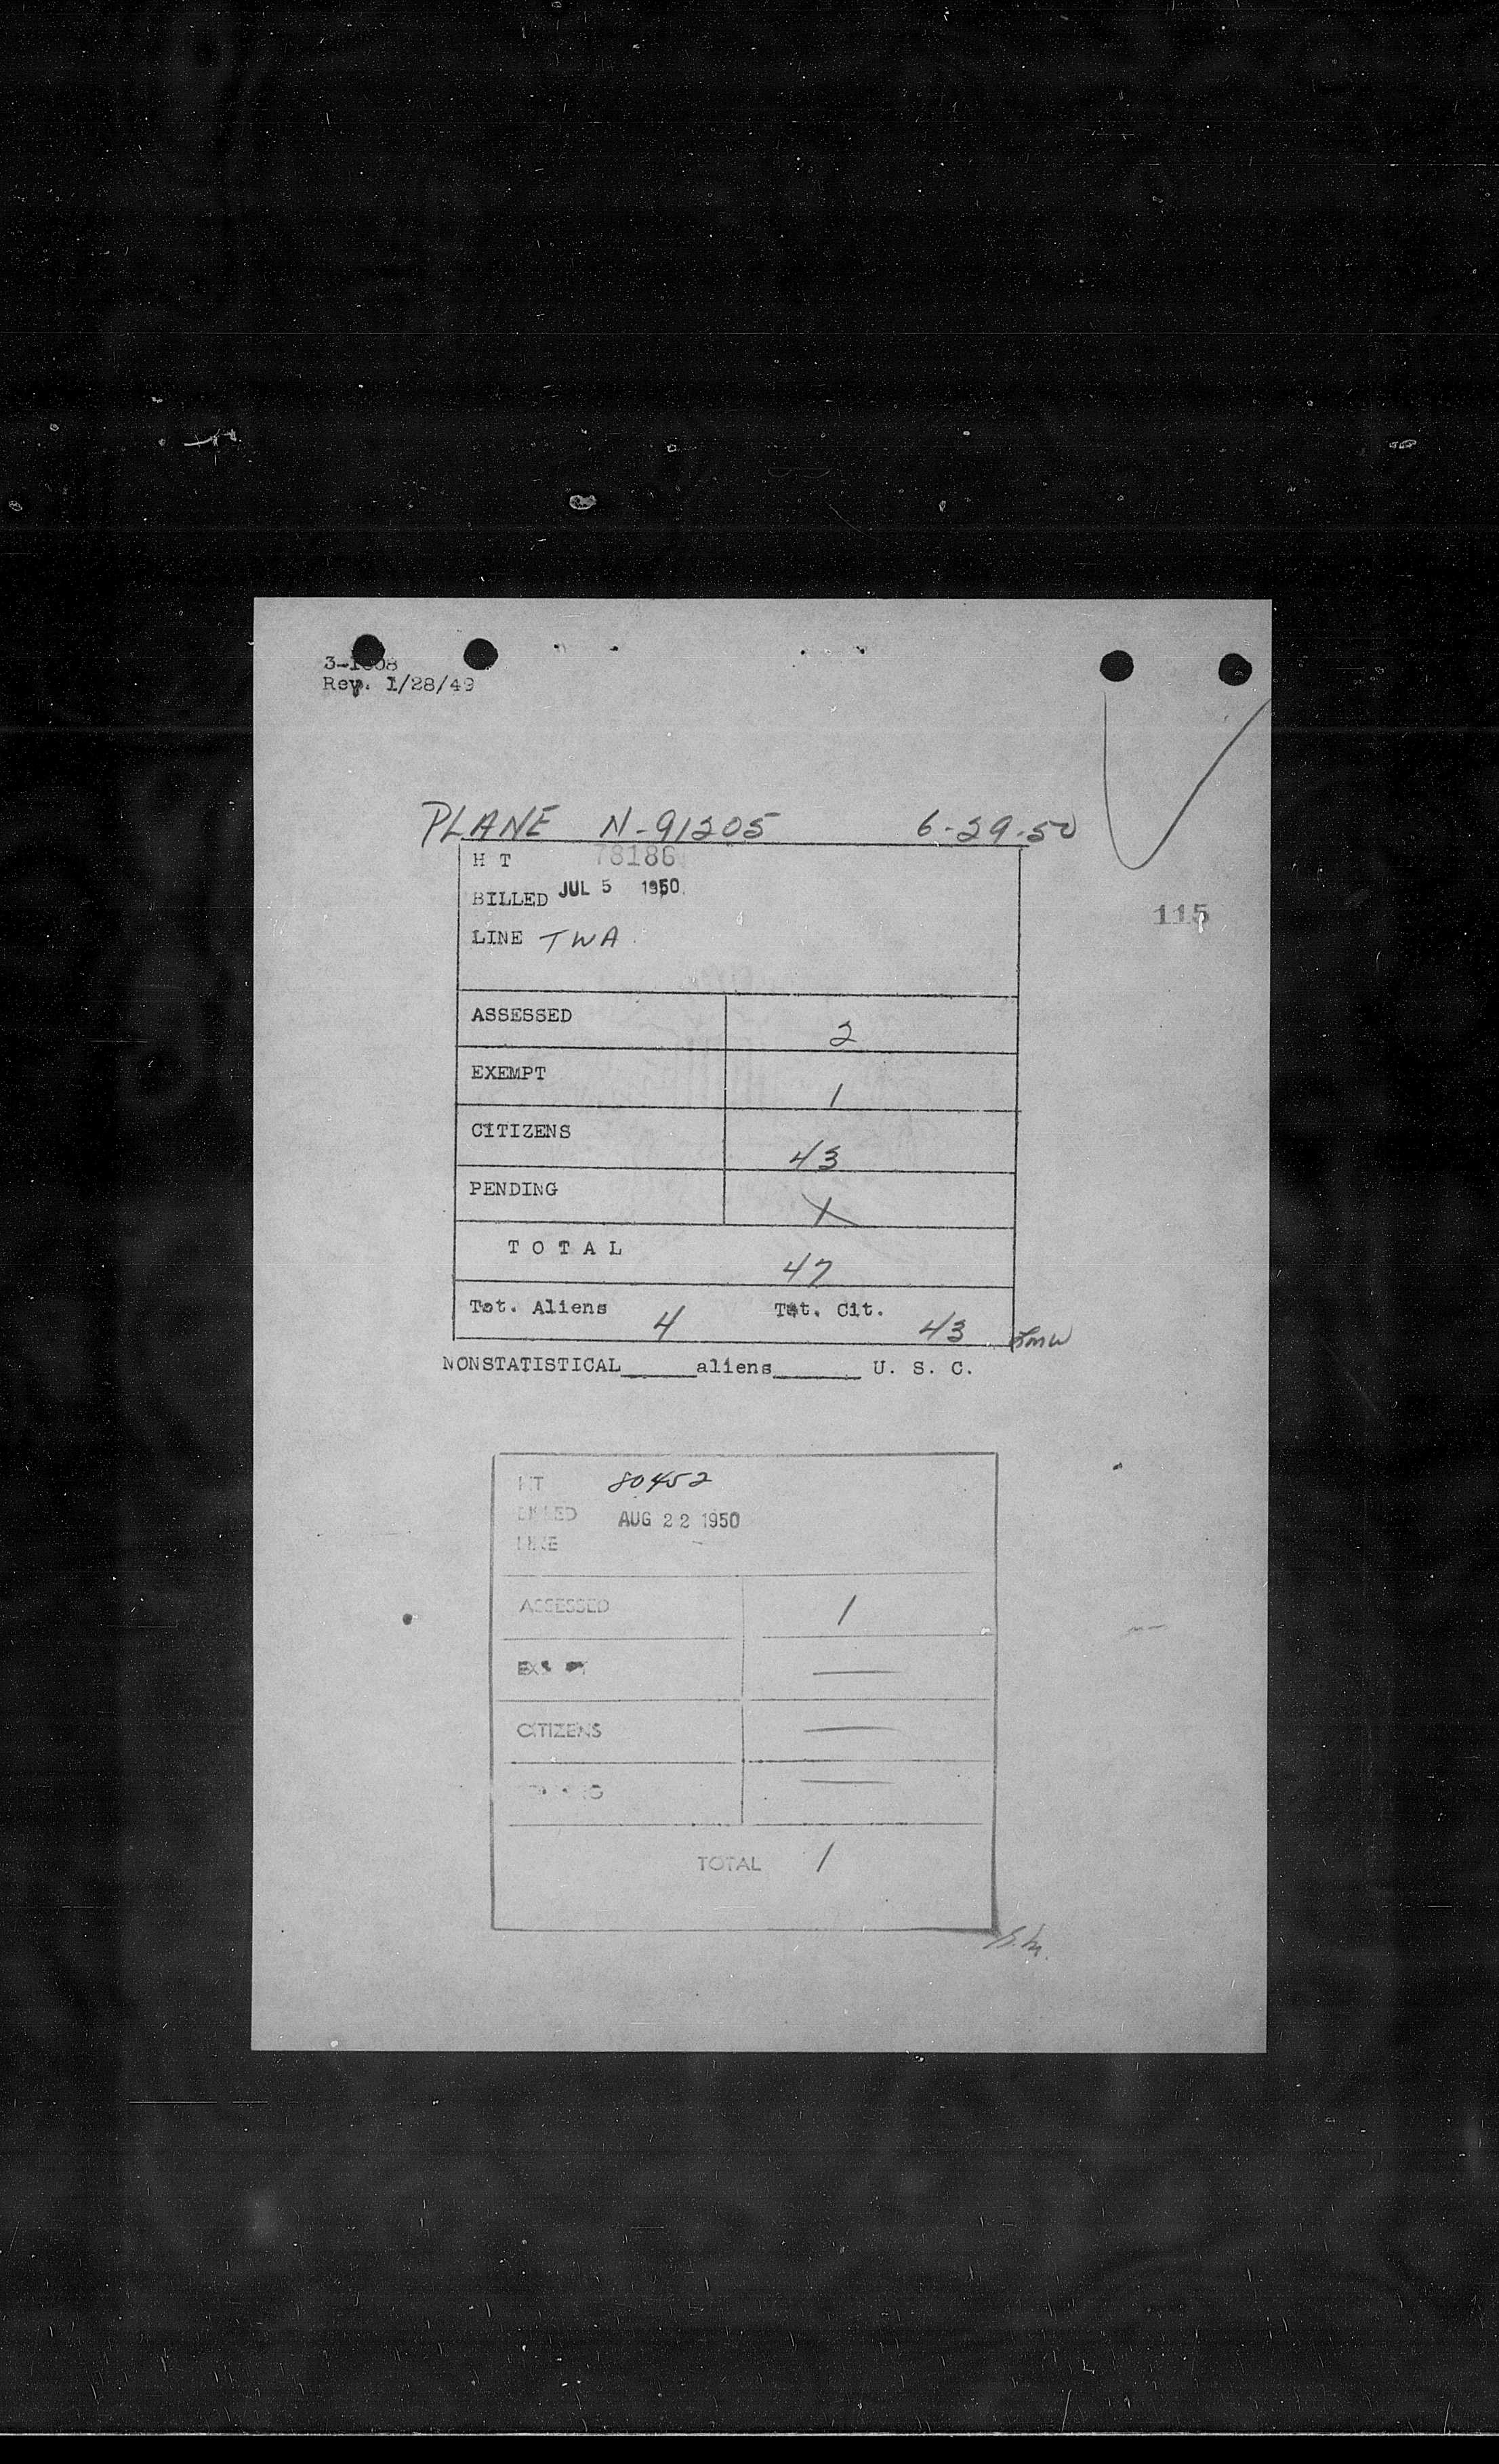 Rev. 1/28/49
PLANE N-91205 6-29-50
H T 78186
BILLED JUL 5 1950
LINE TWA
115
ASSESSED 2
EXEMPT 1
CITIZENS 43
PENDING 1
T O T A L 47
Tot. Aliens 4 Tot. Cit. 43
NONSTATISTICAL_____aliens______ U. S. C.
HT 80452
BILLED AUG 22 1950
LINE
ASSESSED 1
EXEMPT —
CITIZENS —
PENDING —
TOTAL 1